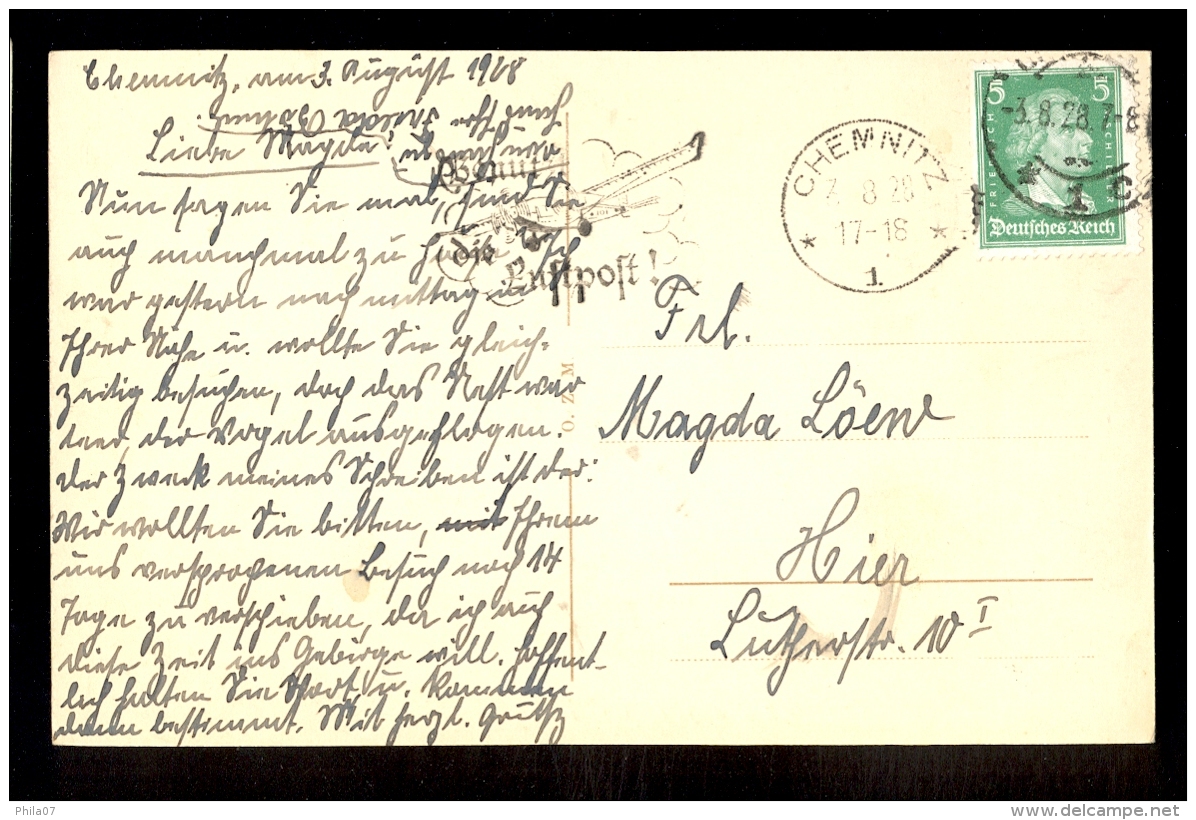 Chemnitz, am 3. August 1928
Liebe Magda!
Nun sagen Sie mal, sind Sie
auch manchmal zu Hause? Ich
war gestern nachmittag in
Ihrer Nähe u. wollte Sie gleich-
zeitig besuchen, doch das Nest war
leer, der Vogel ausgeflogen.
Der Zweck meines Schreiben ist der:
Wir wollten Sie bitten, mit Ihrem
uns versprochenen Besuch noch 14
Tage zu verschieben, da ich auch
diese Zeit ins Gebirge will. Hoffent-
lich halten Sie Wort u. kommen
dann bestimmt. Mit herzl. Gruß
Hilda
Benutzt
die
Luftpost!
CHEMNITZ
3.8.28
17-18
* 1 *
-3.8.28.7-8
* 1 C
5 5
FRIEDRICH SCHILLER
Deutsches Reich
O. Z. M
Frl.
Magda Löew
Hier
Lutherstr. 10 I
Phila07
delcampe.net